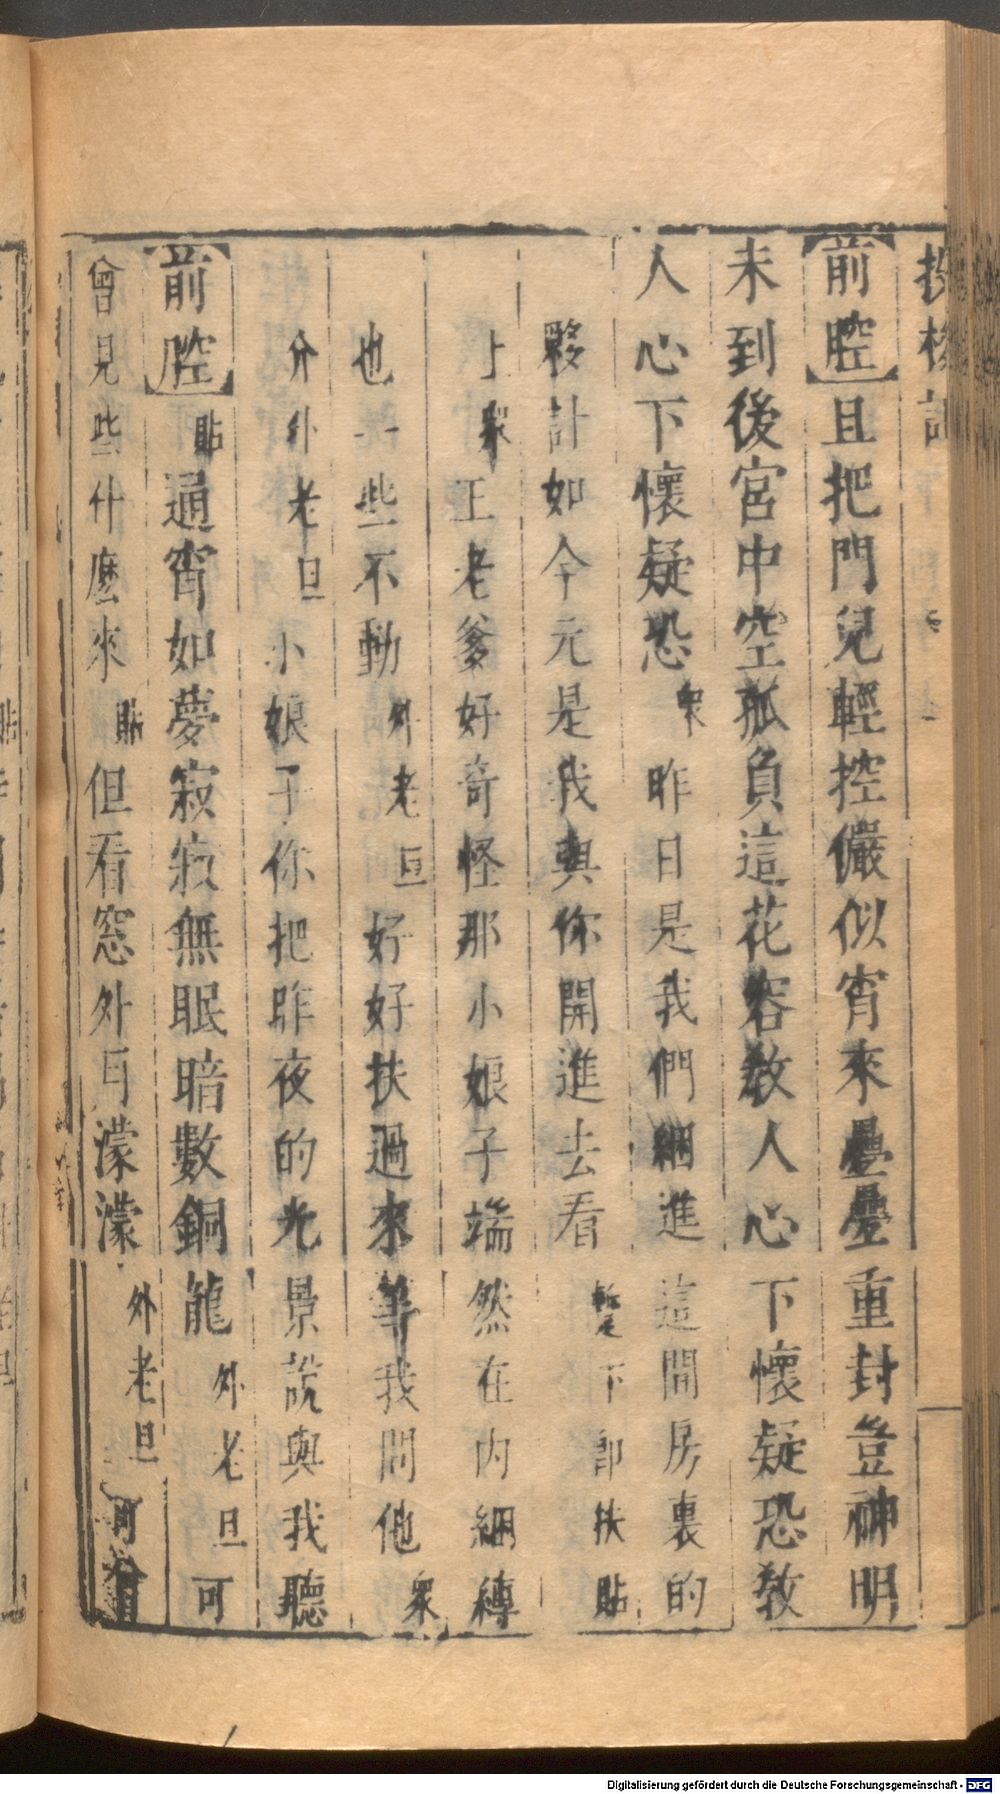 投梭記
前腔且把門兒輕控儼似宵來疊疊重封豈神明
未到後宮中空孤負這花容教人心下懷疑恐教
人心下懷疑恐衆昨日是我們綑進這間房裏的
夥計如今元是我與你開進去看暫下即扶貼
上衆王老爹好奇怪那小娘子端然在內綑縛
也一些不動外老旦好好扶過來等我問他衆
介外老旦小娘子你把昨夜的光景說與我聽
前腔貼通宵如夢寂寂無眠暗數銅龍外老旦可
曾見些什麼來貼但看窓外月濛濛外老旦可曾
Digitalisierung gefördert durch die Deutsche Forschungsgemeinschaft - DFG